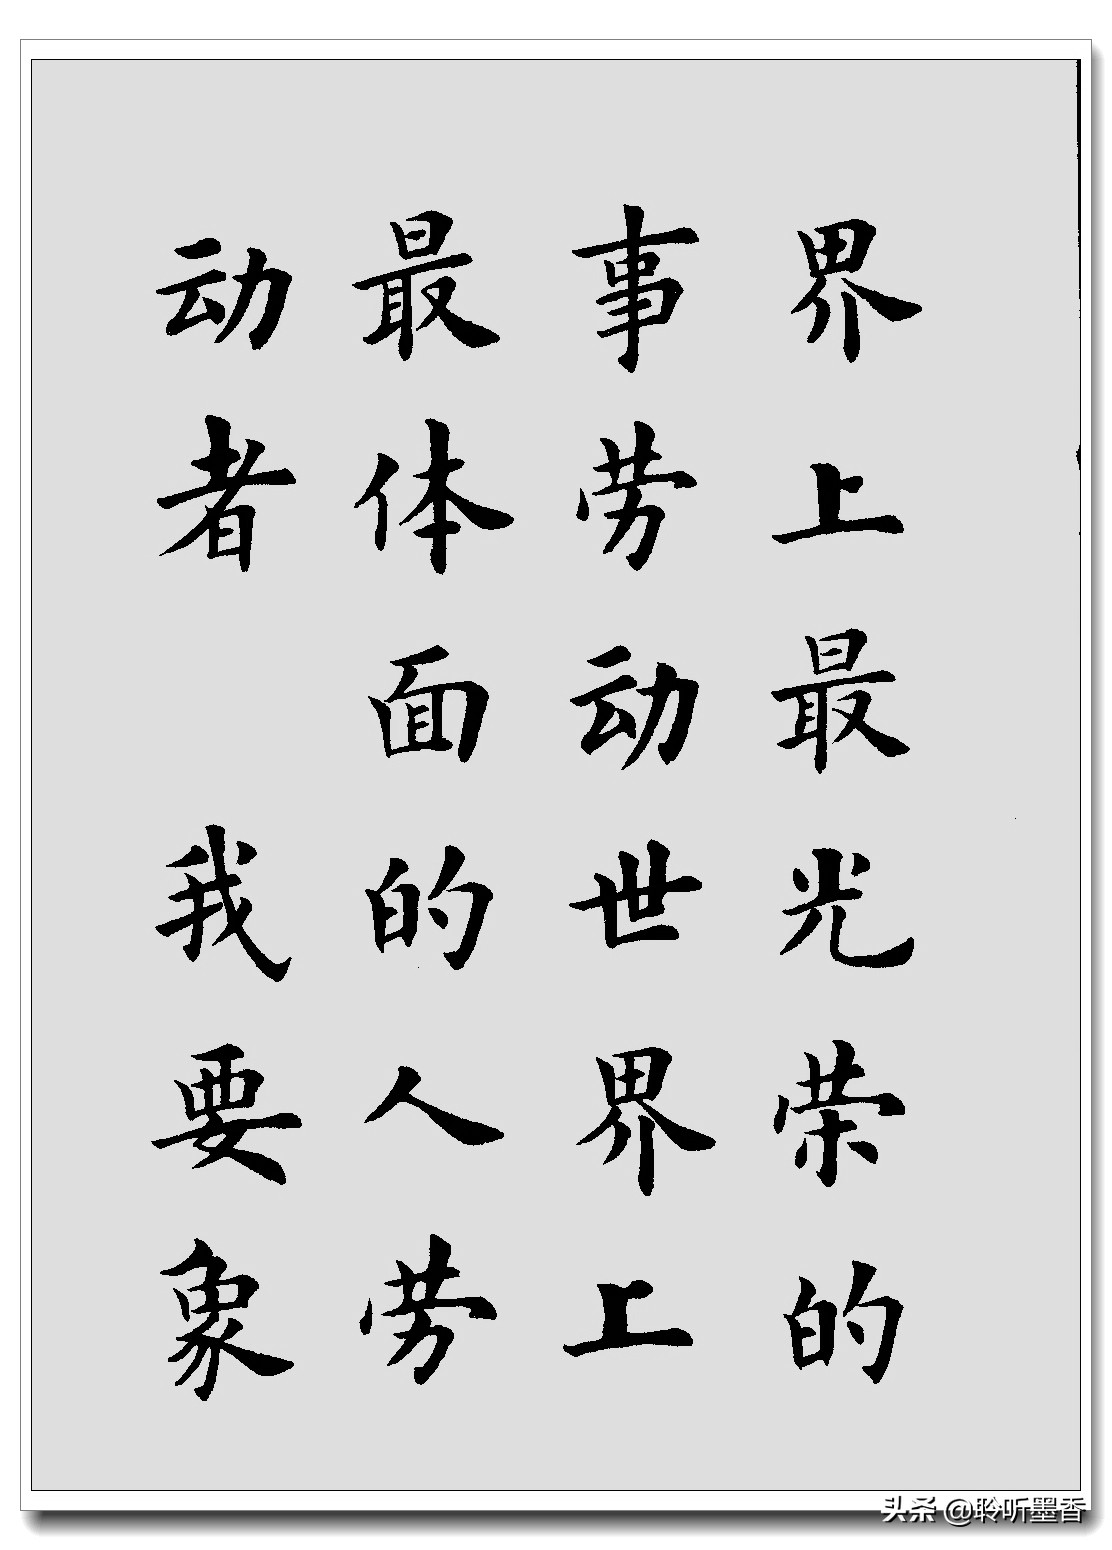 界上最光荣的
事劳动世界上
最体面的人劳
动者 我要象
头条 @聆听墨香